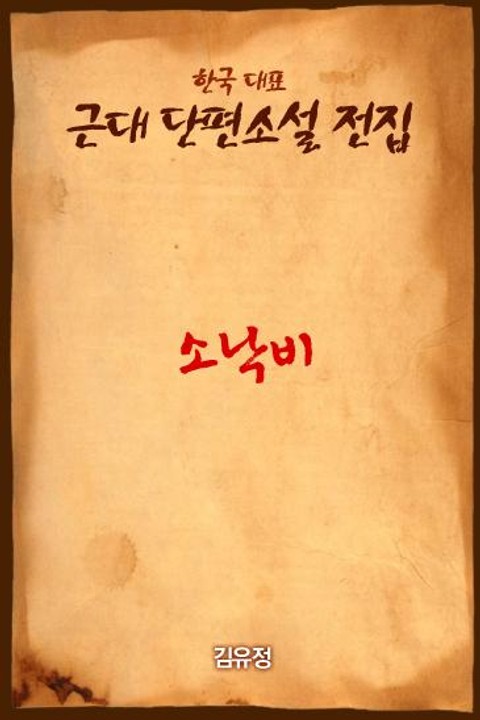 한국 대표
근대 단편소설 전집
소낙비
김유정